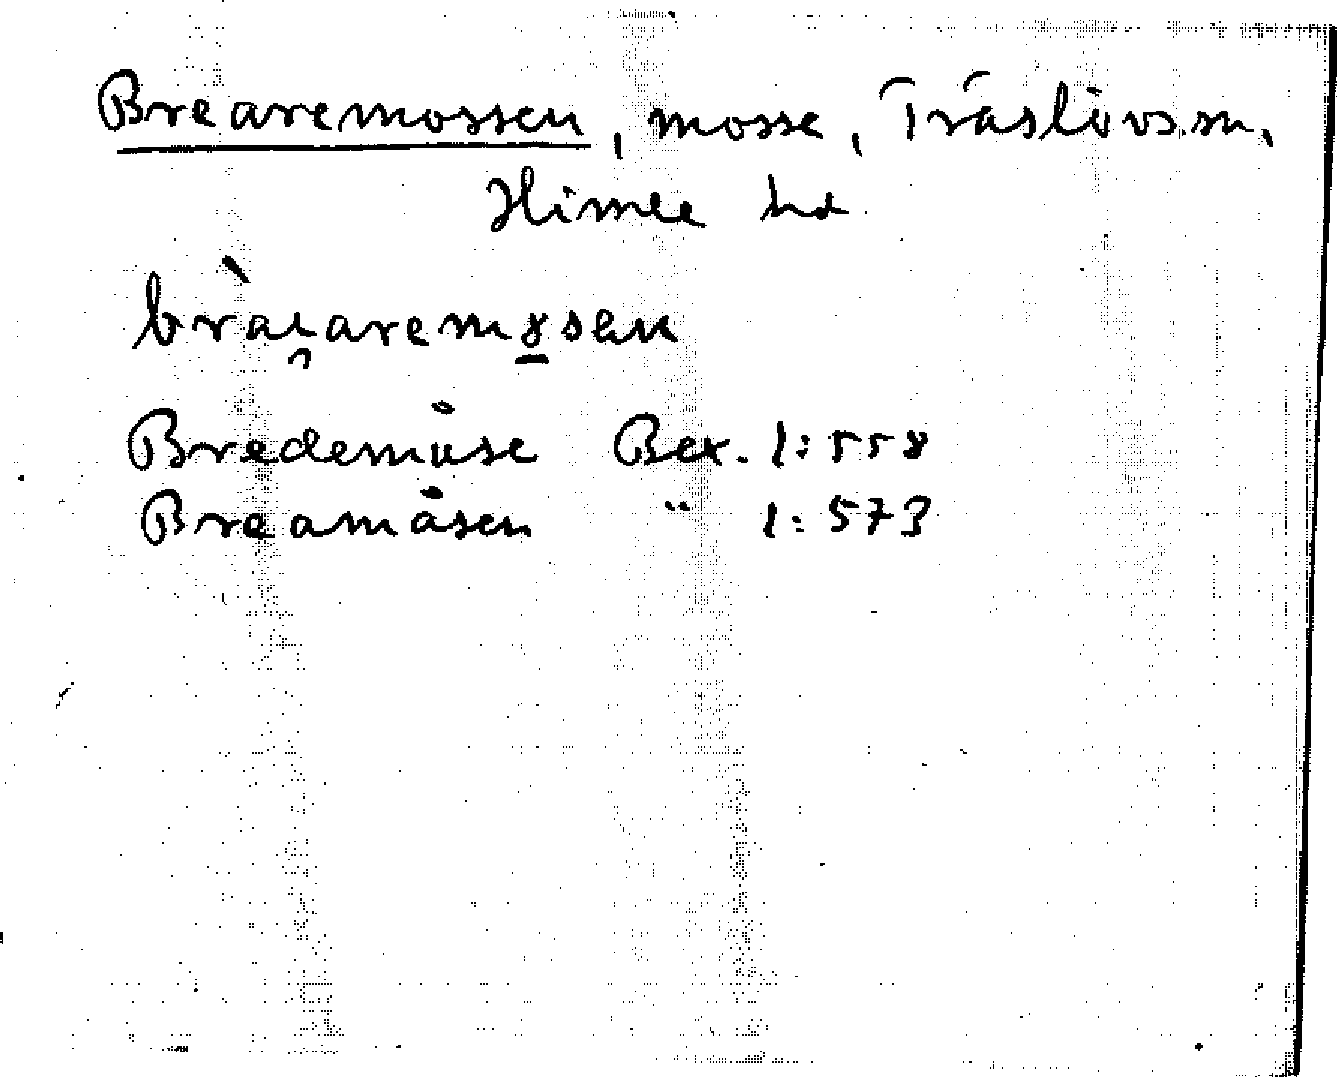 Brearemossen, mosse, Träslövs sn,
Himle hd
Bredemåse Bex. 1:558
Breamåsen " 1:573